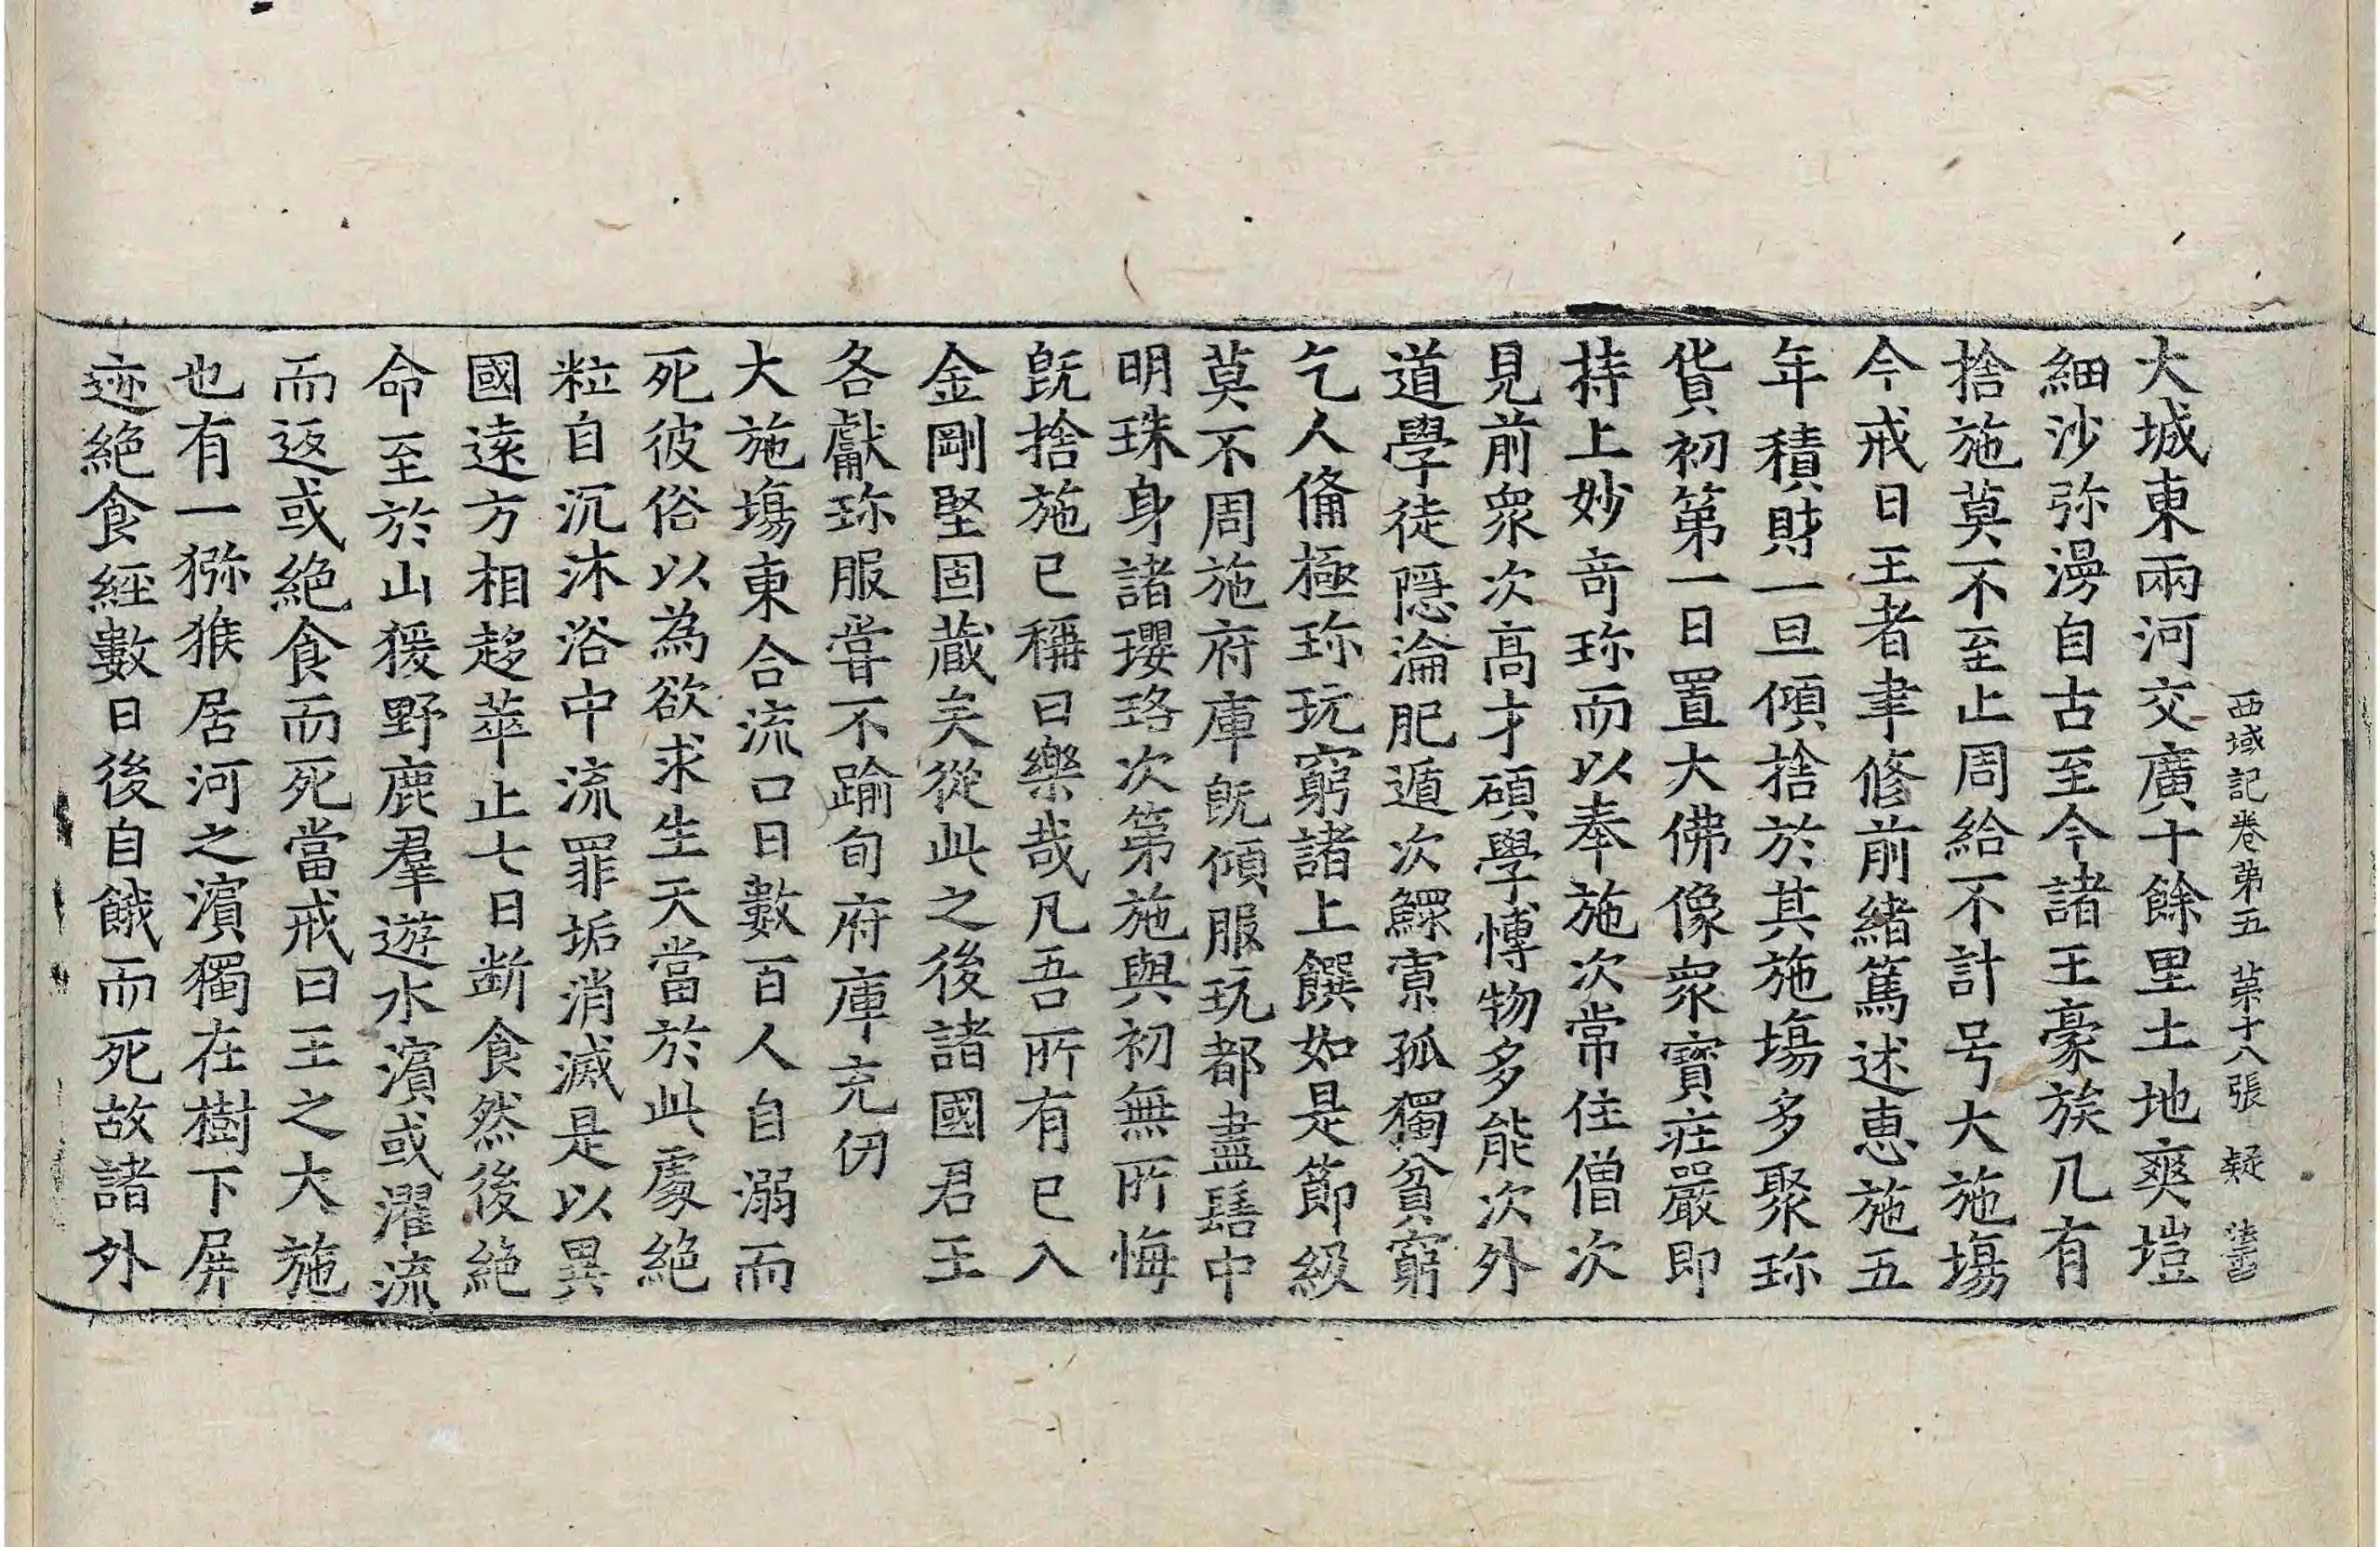 西域記卷第五 第十八張 疑
大城東兩河交廣十餘里土地爽塏
細沙弥漫自古至今諸王豪族凡有
捨施莫不至止周給不計号大施塲
今戒日王者聿修前緒篤述惠施五
年積財一旦傾捨於其施塲多聚珎
貨初第一日置大佛像衆寶莊嚴即
持上妙奇珎而以奉施次常住僧次
見前衆次高才碩學愽物多能次外
道學徒隱淪肥遁次鰥寡孤獨貧窮
乞人俻極珎玩窮諸上饌如是節級
莫不周施府庫旣傾服玩都盡髻中
明珠身諸瓔珞次第施與初無所悔
旣捨施已稱曰樂哉凡吾所有已入
金剛堅固藏矣從此之後諸國君王
各獻珎服甞不踰旬府庫充仞
大施塲東合流口日數百人自溺而
死彼俗以為欲求生天當於此處絶
粒自沉沐浴中流罪垢消滅是以異
國遠方相趍萃止七日断食然後絶
命至於山猨野鹿羣遊水濱或濯流
而返或絶食而死當戒日王之大施
也有一猕猴居河之濱獨在樹下屏
迹絶食經數日後自餓而死故諸外